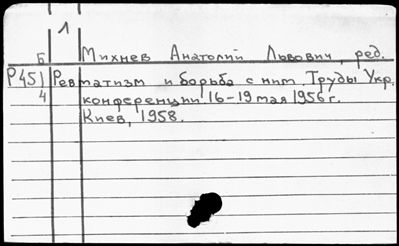 1
Б Михнев Анатолий Львович, ред.
Р451 Ревматизм и борьба с ним. Труды Укр.
4 конференции 16-19 мая 1956 г.
Киев, 1958.